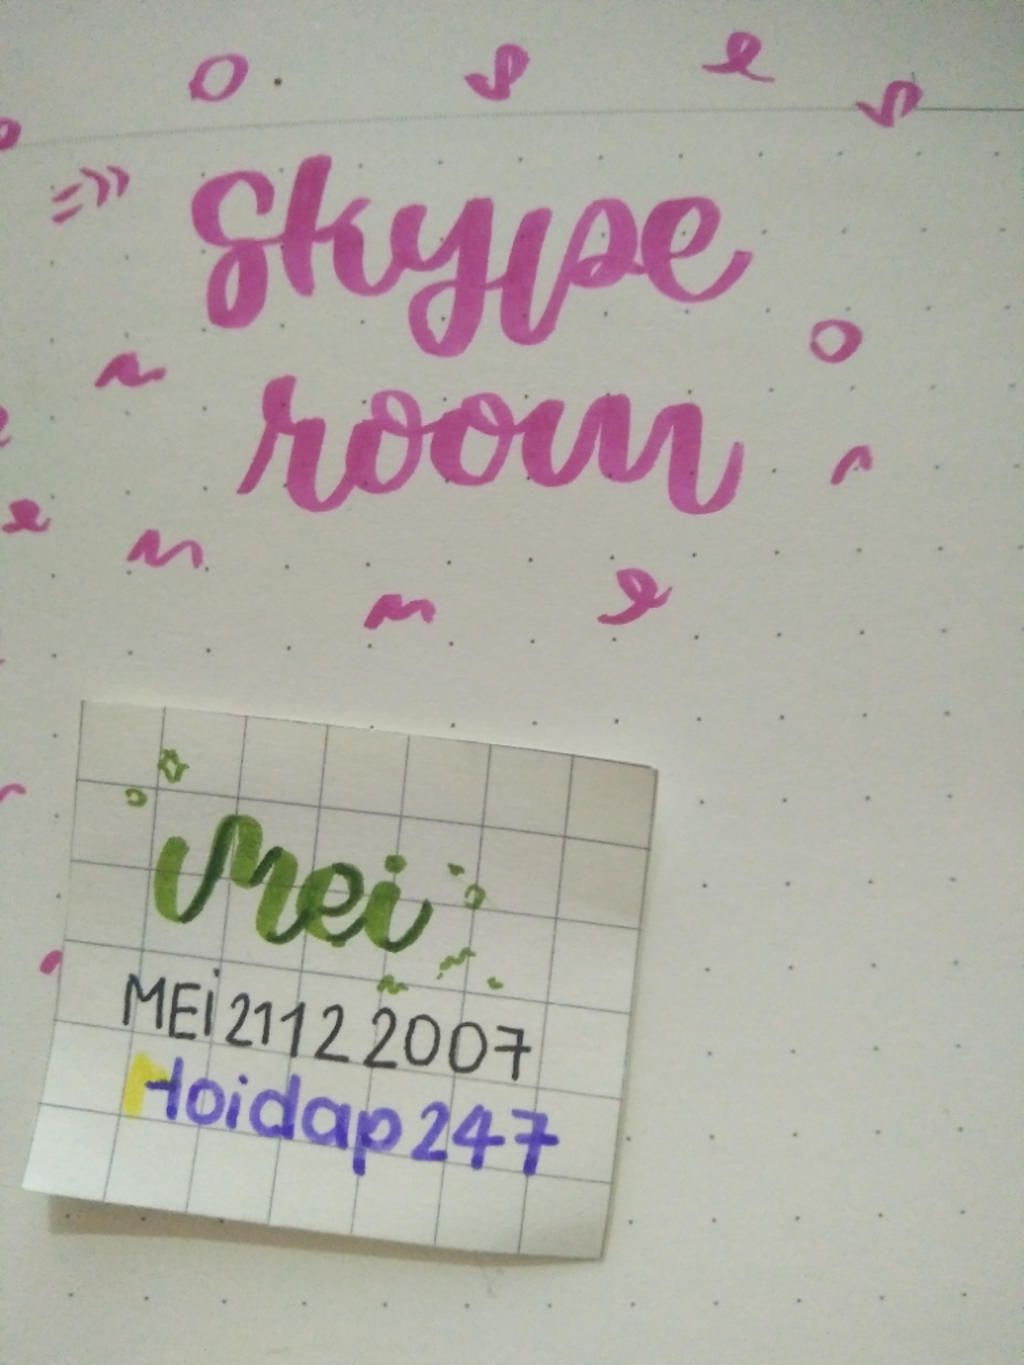 o s e s
skype
o
room
e
e
Mei
MEi21122007
Hoidap247